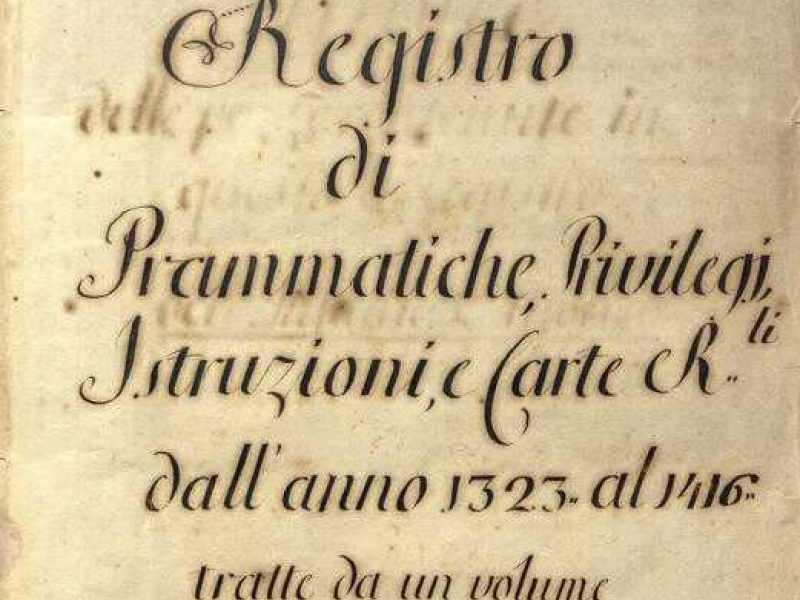 Registro
di
Prammatiche, Privilegj,
Istruzioni, e Carte R.li
dall'anno 1323. al 1416.
tratte da un volume